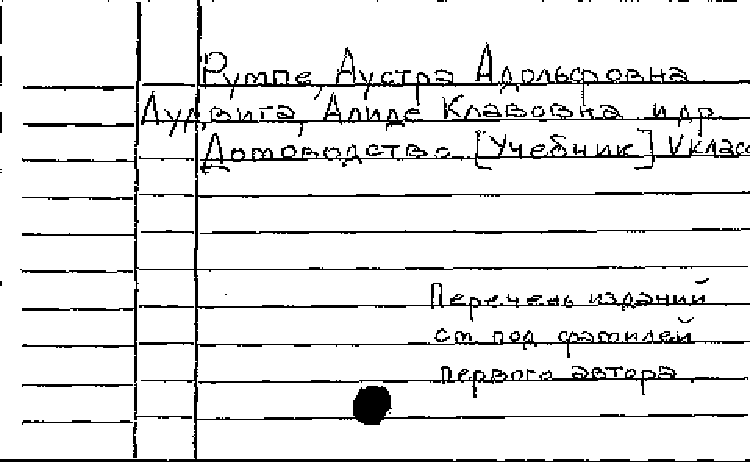 Румпе, Аустра Адольфовна
Лудвига, Алиде Клавовна и др.
Домоводство [Учебник] V класс
Перечень изданий
см. под фамилией
первого автора